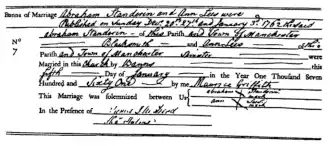 Banns of Marriage Abraham Standerin and Ann Lees were
Published on Sunday Dec. 20th 27th and January 3d 1762 the said
Abraham Standerin of this Parish and Town of Manchester
No 7
Blacksmith and Ann Lees of this
Parish and Town of Manchester Spinster were
Married in this Church by Banns this
fifth Day of January in the Year One Thousand Seven
Hundred and Sixty One by me Maurice Griffith
This Marriage was solemnized between Us
Abraham
Ann
In the Presence of